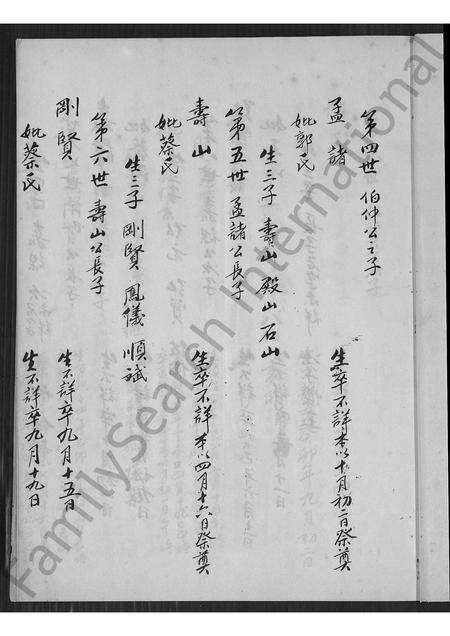 第四世 伯仲公之子
孟諸 生卒不詳本以十月初二日祭奠
妣郭氏
生三子 壽山 殿山 石山
第五世 孟諸公長子
壽山 生卒不詳本以四月十六日祭奠
妣蔡氏
生三子 剛賢 鳳儀 順斌
第六世 壽山公長子
剛賢 生不詳卒九月十五日
妣蔡氏 生不詳卒九月十九日
FamilySearch International